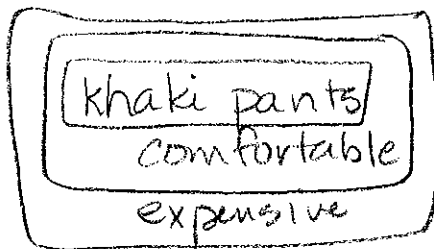 khaki pants
comfortable
expensive